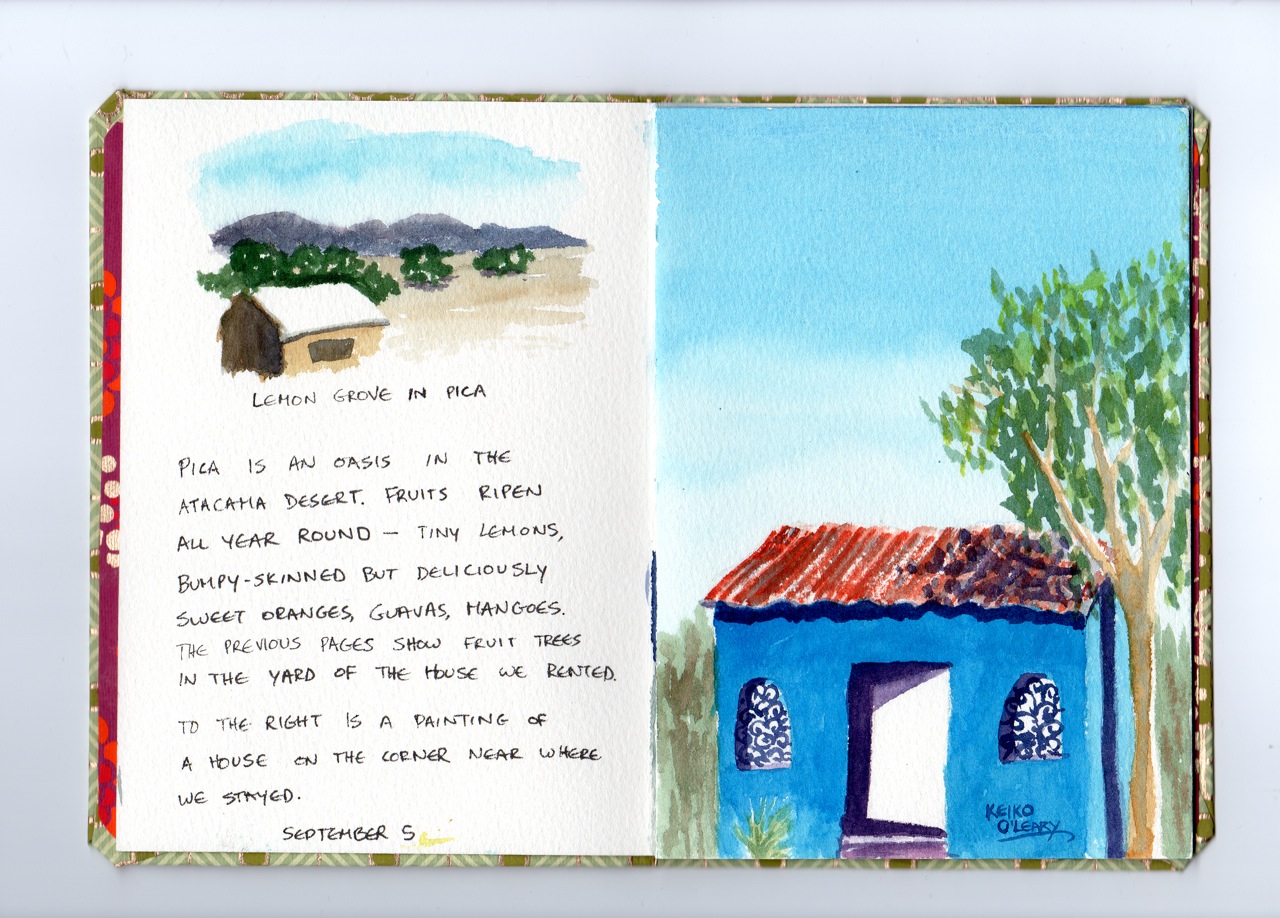 LEMON GROVE IN PICA
PICA IS AN OASIS IN THE
ATACAMA DESERT. FRUITS RIPEN
ALL YEAR ROUND — TINY LEMONS,
BUMPY-SKINNED BUT DELICIOUSLY
SWEET ORANGES, GUAVAS, MANGOES.
THE PREVIOUS PAGES SHOW FRUIT TREES
IN THE YARD OF THE HOUSE WE RENTED.
TO THE RIGHT IS A PAINTING OF
A HOUSE ON THE CORNER NEAR WHERE
WE STAYED.
SEPTEMBER 5
KEIKO
O'LEARY